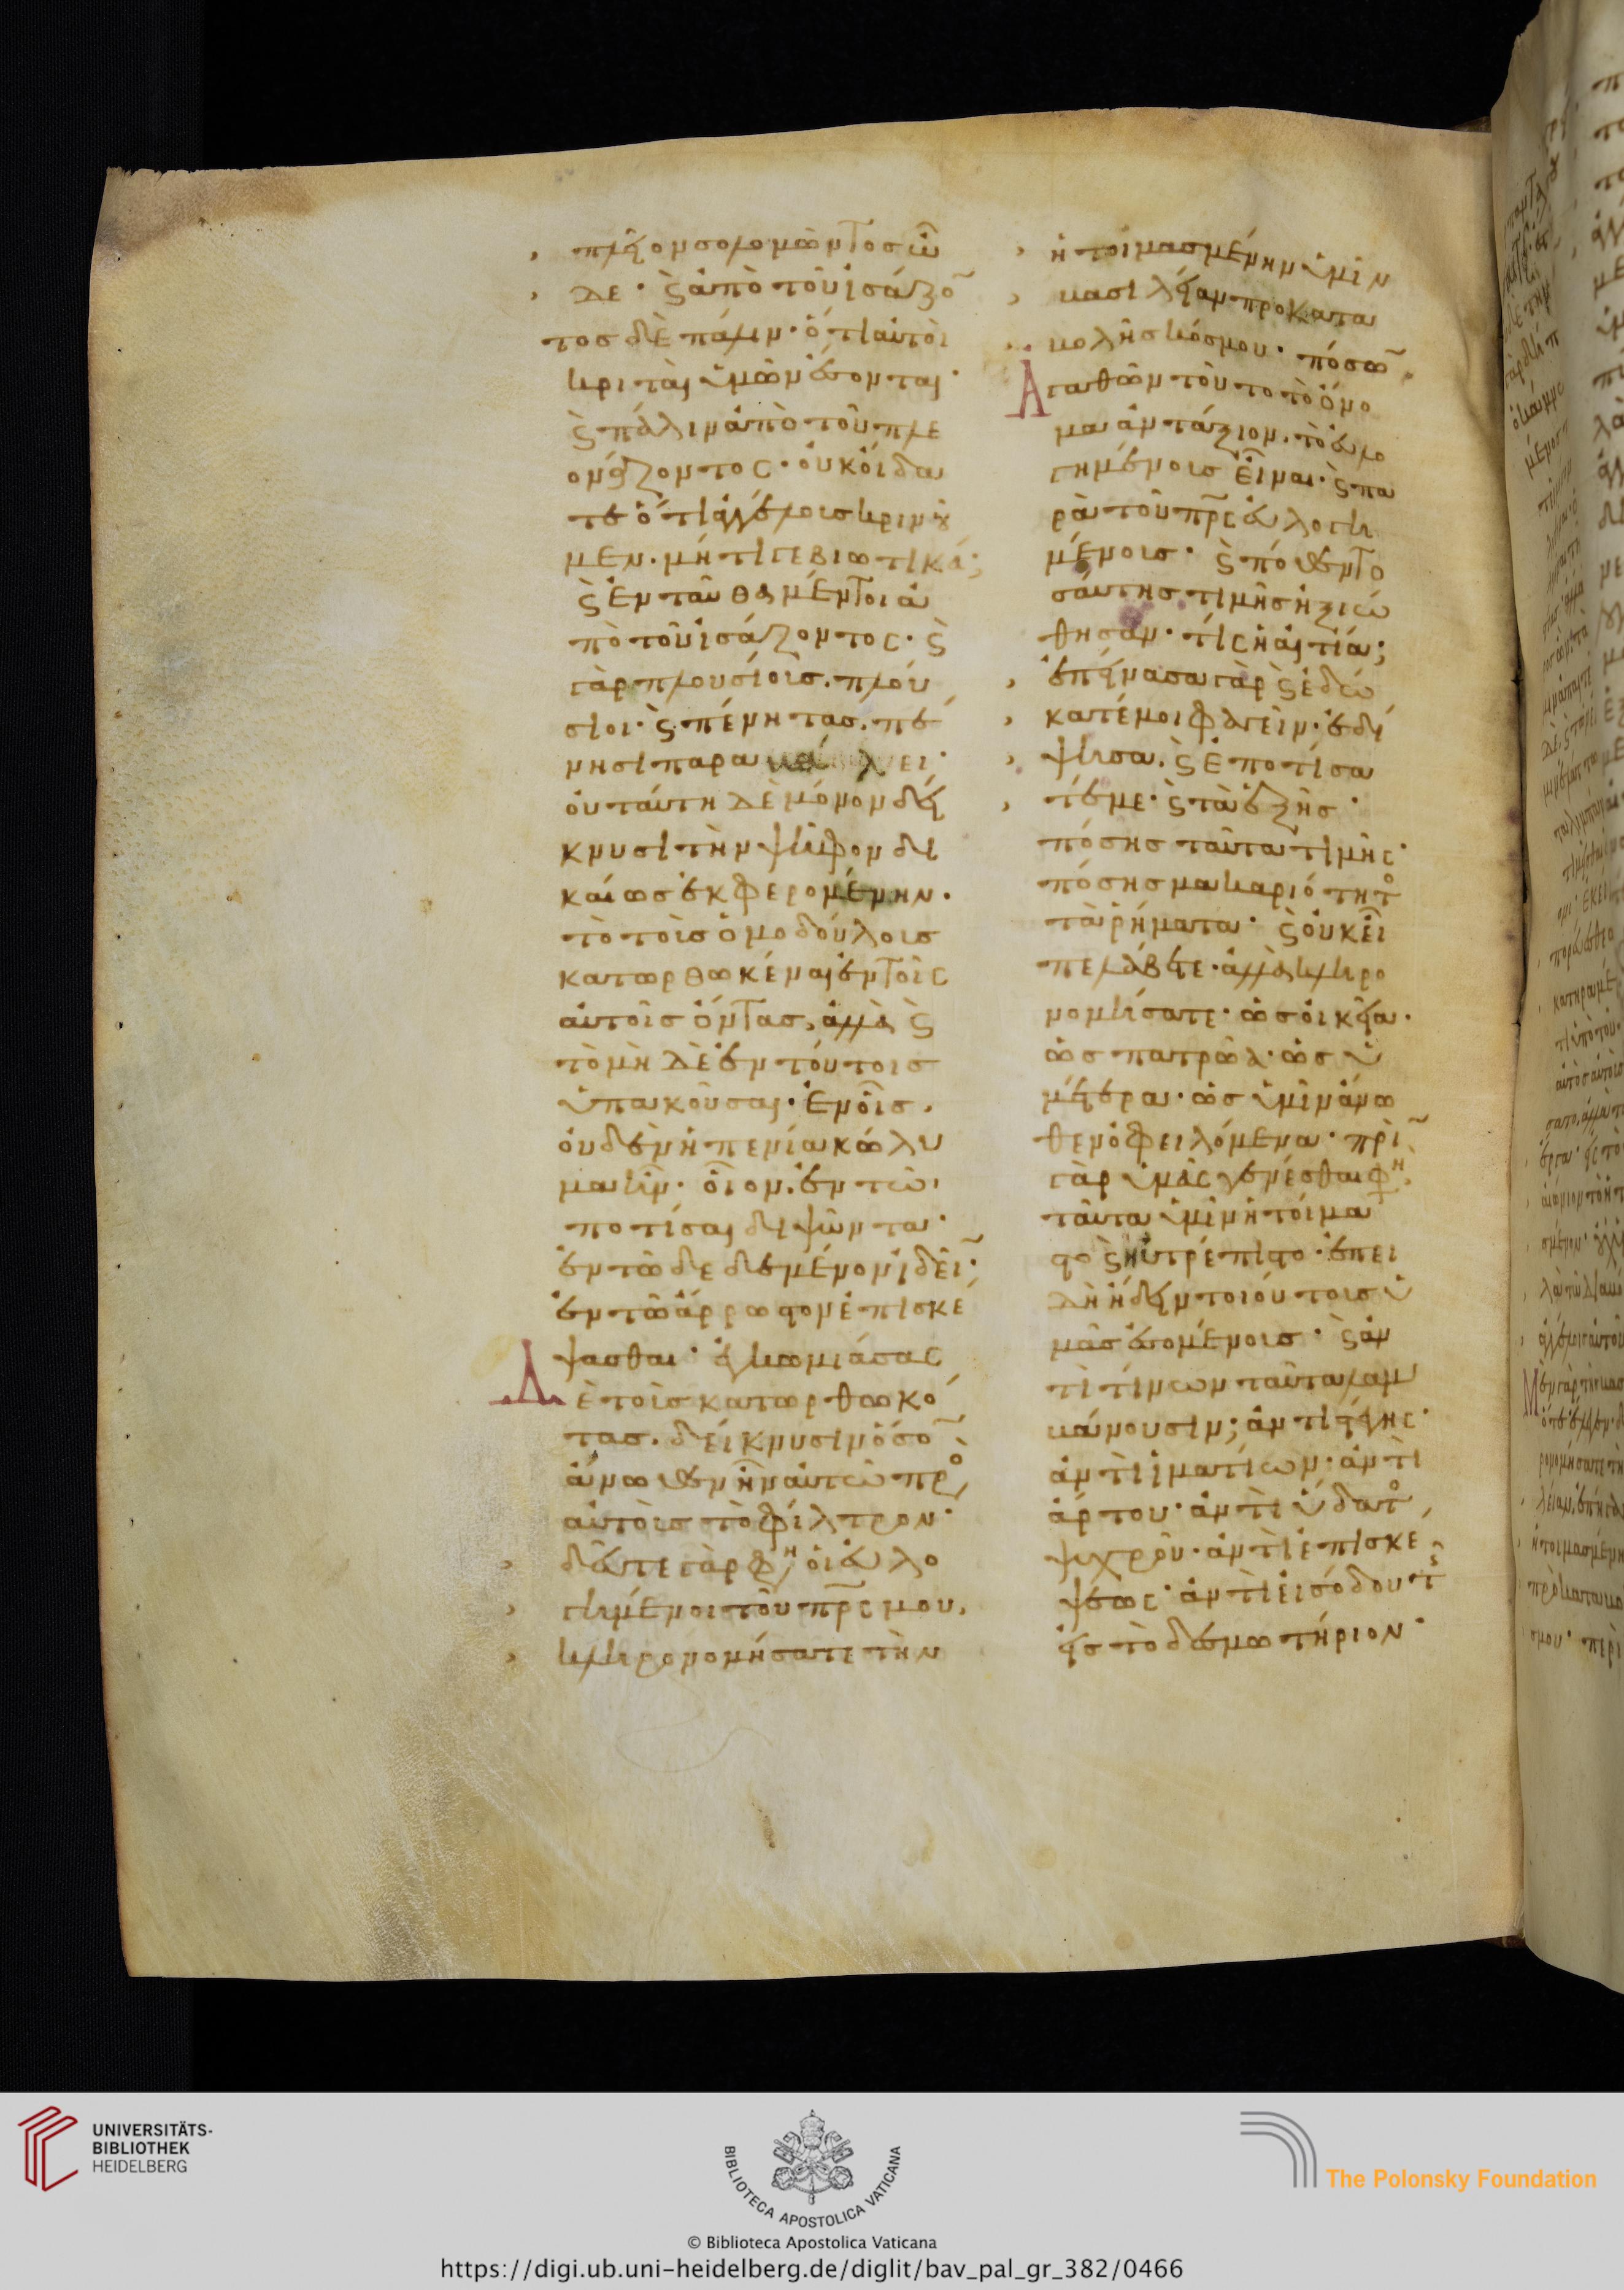 πλεῖον σολομῶντος ὧ
δε· ϛ ἀπὸ τοῦ ἰσάζο̄
τος δὲ πάλιν· ὅτι αὐτοὶ
κριταὶ ὑμῶν ἔσονται·
ϛ πάλιν ἀπὸ τοῦ πλε
ονάζοντος· οὐκ οἴδα
τε ὅτι ἀγγέλοις κρινοῦ
μεν. μήτι γε βιωτικά;
ϛ ἐνταῦθα μέντοι ἀ
πὸ τοῦ ἰσάζοντος· ϛ
γὰρ πλουσίοις. πλου
σίοι· ϛ πένητας. πέ
νησι παρα λει·
οὐ ταύτη δὲ μόνον δεί
κνυσι τὴν ψῆφον δι
καίως ἐκφερομένην.
τὸ τοῖς ὁμοδούλοις
κατωρθωκέναι ἐν τοῖς
αὐτοῖς ὄντας, ἀλλὰ ϛ
τὸ μὴ δὲ ἐν τούτοις
ὑπακοῦσαι· ἐν οἷς.
οὐδὲν ἡ πενία κώλυ
μα ἦν· οἷον. ἐν τῶ
ποτίσαι διψῶντα·
ἐν τῶ δεδεμένον ἰδεῖ̄·
ἐν τῶ ἄρρωστον ἐπισκέ
ψασθαι· ἐγκωμιάσας
Δὲ τοὺς κατωρθωκό
τας. δείκνυσιν ὅσο̄
ἄνωθεν ἦν αὐτῶ πρὸ
αὐτοὺς τὸ φίλτρον·
δεῦτε γὰρ φη οἱ εὐλο
γημένοι τοῦ πρ̄ς μου,
κληρονομήσατε τὴν
ἡτοιμασμένην ὑμῖν
βασιλείαν προκατα
βολῆς κόσμου· πόσω̄
Ἀγαθῶν τοῦτο τὸ ὄνο
μα ἀντάξιον. τὸ εὐλο
γημένοις εἶναι· ϛ πα
ρὰ τοῦ πρ̄ς εὐλογη
μένοις· ϛ πόθεν το
σαύτης τιμῆς ἠξιώ
θησαν· τίς ἡ αἰτία;
ἐπείνασα γὰρ ϛ ἐδώ
κατέ μοι φαγεῖν· ἐδί
ψησα. ϛ ἐποτίσα
τέ με· ϛ τὰ ἑξῆς·
πόσης ταῦτα τιμῆς·
πόσης μακαριότητο
τὰ ῥήματα· ϛ οὐκ εἶ
πε λάβετε· ἀλλὰ κληρο
νομήσατε· ὡς οἰκεῖα.
ὡς πατρῶα· ὡς ὑ
μέτερα· ὡς ὑμῖν ἄνω
θεν ὀφειλόμενα· πρὶ̄
γὰρ ὑμᾶς γενέσθαι φη
ταῦτα ὑμῖν ἡτοίμα
στο ϛ ηὐτρέπιστο· ἐπει
δὴ ἤδειν τοιούτοις ὑ
μᾶς ἐσομένοις· ϛ ἀν
τὶ τίνων ταῦτα λαμ
βάνουσιν; ἀντὶ στέγης·
ἀντὶ ἱματίων· ἀντὶ
ἄρτου· ἀντὶ ὕδατο
ψυχροῦ· ἀντὶ ἐπισκέ
ψεως· ἀντὶ εἰσόδου τ
εἰς τὸ δεσμωτήριον·
UNIVERSITÄTS-
BIBLIOTHEK
HEIDELBERG
BIBLIOTECA APOSTOLICA VATICANA
The Polonsky Foundation
© Biblioteca Apostolica Vaticana
https://digi.ub.uni-heidelberg.de/diglit/bav_pal_gr_382/0466